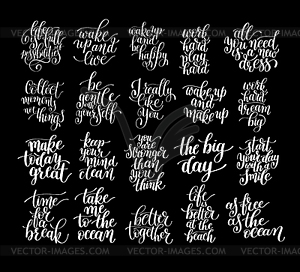 VECTOR-CLIPART.COM
wake
up and
live
wake up
and be
happy
work
hard
play
hard
all
you need
is a new
dress
collect
moments
not
things
be
gentle
with
yourself
I really
like
you
wake up
and
make up
work
hard
dream
big
make
today
great
keep
your
mind
clean
you
are
stronger
than
you
think
the big
day
start
your day
with a
smile
time
for a
break
take
me to
the ocean
better
together
life
is
better
at the
beach
as free
as the
ocean
VECTOR-CLIPART.COM